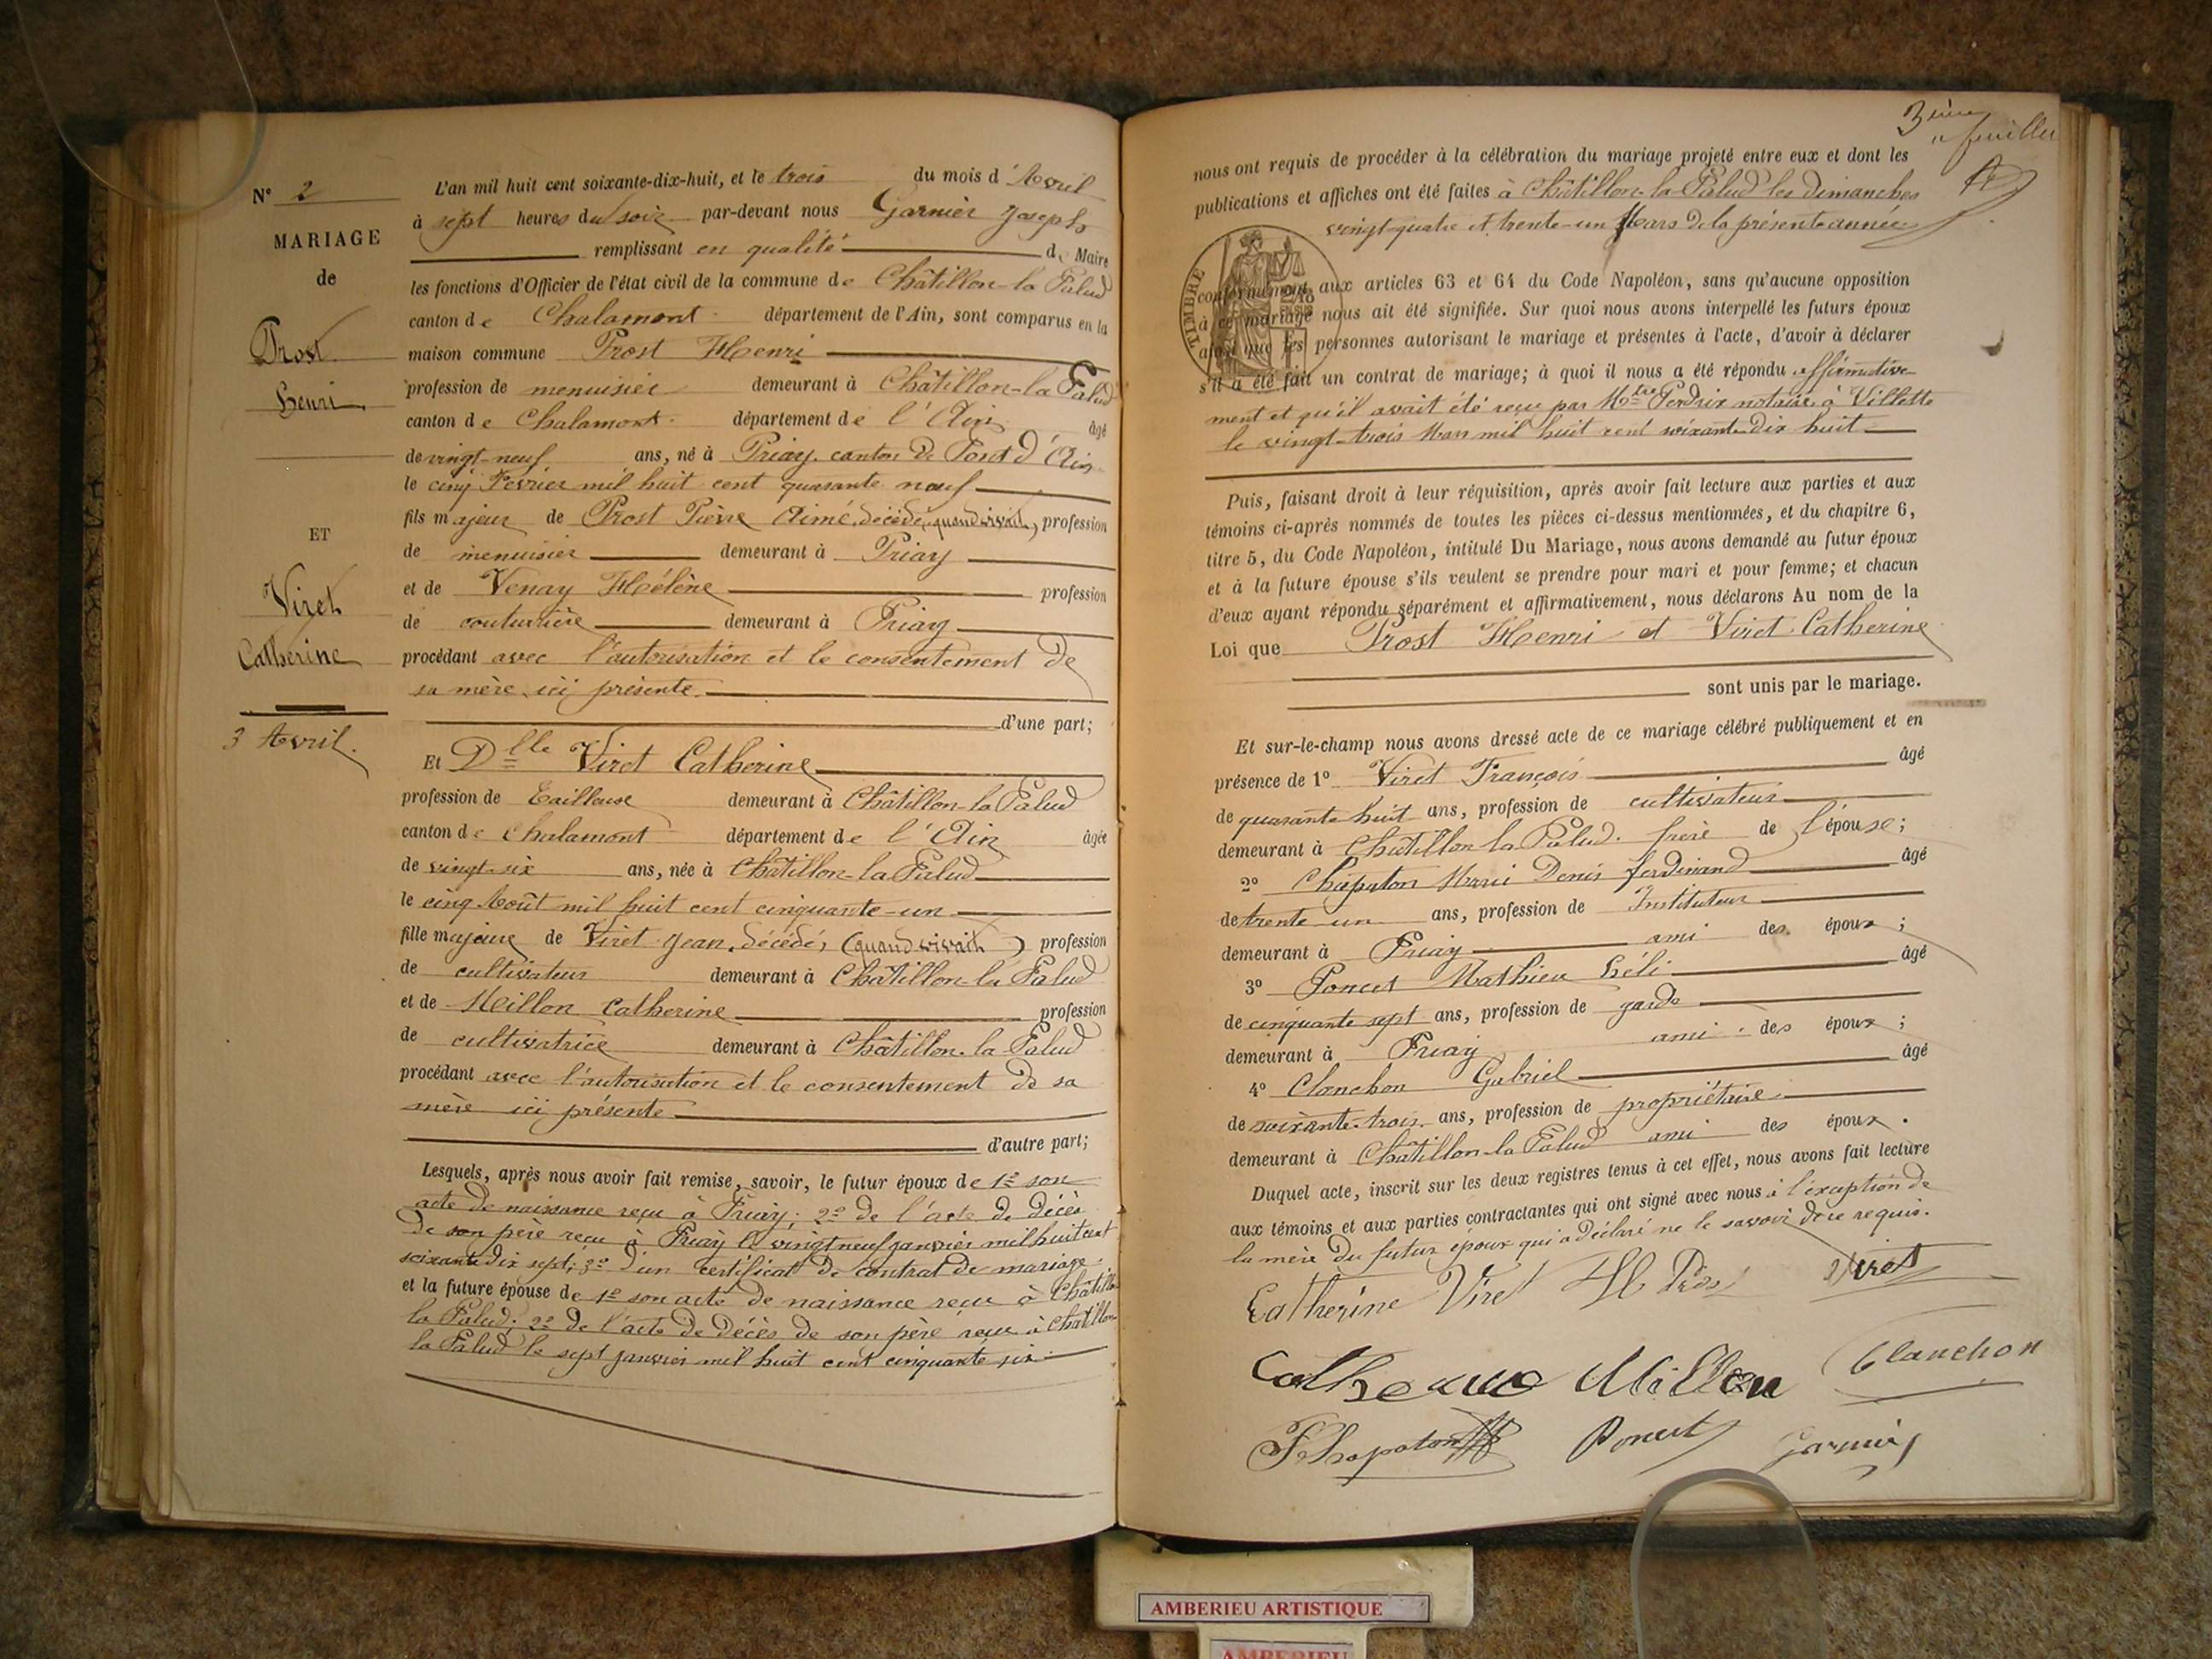 N° 2
MARIAGE
de
Prost
Henri
ET
Viret
Catherine
3 Avril.
L'an mil huit cent soixante-dix-huit, et le trois du mois d'Avril
à sept heures du soir par-devant nous Garnier Joseph
remplissant en qualité de Maire
les fonctions d'Officier de l'état civil de la commune de Châtillon-la Palud
canton de Chalamont département de l'Ain, sont comparus en la
maison commune Prost Henri
profession de menuisier demeurant à Châtillon-la Palud
canton de Chalamont département de l'Ain âgé
de vingt-neuf ans, né à Priay canton de Pont d'Ain
le cinq Fevrier mil huit cent quarante neuf
fils majeur de Prost Pierre Aimé, décédé, (quand vivait) profession
de menuisier demeurant à Priay
et de Venay Hélène profession
de couturière demeurant à Priay
procédant avec l'autorisation et le consentement de
sa mère ici présente.
d'une part;
Et Dlle Viret Catherine
profession de Tailleuse demeurant à Châtillon-la Palud
canton de Chalamont département de l'Ain âgée
de vingt-six ans, née à Châtillon-la Palud
le cinq Août mil huit cent cinquante-un
fille majeure de Viret Jean, décédé, (quand vivait) profession
de cultivateur demeurant à Châtillon-la Palud
et de Meillon Catherine profession
de cultivatrice demeurant à Châtillon-la Palud
procédant avec l'autorisation et le consentement de sa
mère ici présente
d'autre part;
Lesquels, après nous avoir fait remise, savoir, le futur époux de 1° son
acte de naissance reçu à Priay; 2° de l'acte de décès
de son père reçu à Priay le vingt neuf janvier mil huit cent
soixante dix sept; 3° d'un certificat de contrat de mariage
et la future épouse de 1° son acte de naissance reçu à Châtillon
la Palud; 2° de l'acte de décès de son père reçu à Châtillon
la Palud le sept janvier mil huit cent cinquante six
3ième feuillet
nous ont requis de procéder à la célébration du mariage projeté entre eux et dont les
publications et affiches ont été faites à Châtillon-la Palud les dimanches
vingt-quatre et trente-un Mars de la présente année
TIMBRE
conformément aux articles 63 et 64 du Code Napoléon, sans qu'aucune opposition
à ce mariage nous ait été signifiée. Sur quoi nous avons interpellé les futurs époux
ainsi que les personnes autorisant le mariage et présentes à l'acte, d'avoir à déclarer
s'il a été fait un contrat de mariage; à quoi il nous a été répondu affirmative-
ment et qu'il avait été reçu par Mtre Perdrix notaire à Villette
le vingt-trois Mars mil huit cent soixante dix huit
Puis, faisant droit à leur réquisition, après avoir fait lecture aux parties et aux
témoins ci-après nommés de toutes les pièces ci-dessus mentionnées, et du chapitre 6,
titre 5, du Code Napoléon, intitulé Du Mariage, nous avons demandé au futur époux
et à la future épouse s'ils veulent se prendre pour mari et pour femme; et chacun
d'eux ayant répondu séparément et affirmativement, nous déclarons Au nom de la
Loi que Prost Henri et Viret Catherine
sont unis par le mariage.
Et sur-le-champ nous avons dressé acte de ce mariage célébré publiquement et en
présence de 1° Viret François âgé
de quarante huit ans, profession de cultivateur
demeurant à Châtillon la Palud frère de l'épouse;
2° Chapaton Marie Denis Ferdinand âgé
de trente un ans, profession de Instituteur
demeurant à Priay ami des époux;
3° Poncet Mathieu Héli âgé
de cinquante sept ans, profession de garde
demeurant à Priay ami des époux;
4° Clanchon Gabriel âgé
de soixante-trois ans, profession de propriétaire
demeurant à Châtillon-la Palud ami des époux.
Duquel acte, inscrit sur les deux registres tenus à cet effet, nous avons fait lecture
aux témoins et aux parties contractantes qui ont signé avec nous à l'exception de
la mère du futur époux qui a déclaré ne le savoir de ce requis.
Catherine Viret H Prost Viret
Catherine Millon Clanchon
Chapaton Poncet Garnier
AMBERIEU ARTISTIQUE
AMBERIEU